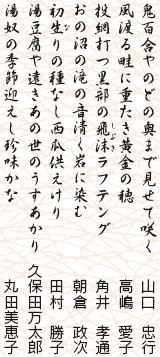 鬼百合やのどの奥まで見せて咲く 山口 忠行
風渡る畦に重たき黄金の穂 高嶋 愛子
投網打つ黒部の飛沫ラフテング 角井 孝通
しぶき
おの沼の滝の音清く岩に染む 朝倉 政次
初生りの種なし西瓜供えけり 田村 勝子
な
湯豆腐や遠きあの世のうすあかり 久保田万太郎
湯奴の季節迎えし珍味かな 丸田美恵子